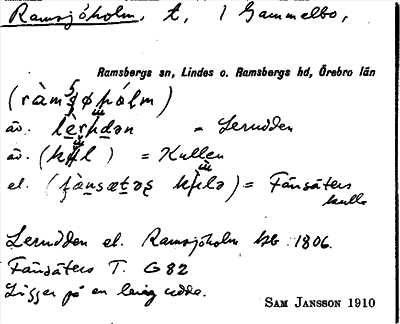 Ramsjöholm, t, 1 Gammelbo,
Ramsbergs sn, Lindes o. Ramsbergs hd, Örebro län
äv. = Lerudden
äv. = Kullen
el. = Fänsäters
kulle
Lerudden el. Ramsjöholm hb. 1806.
Fänsäters T. G 82
Ligger på en lerig udde.
SAM JANSSON 1910